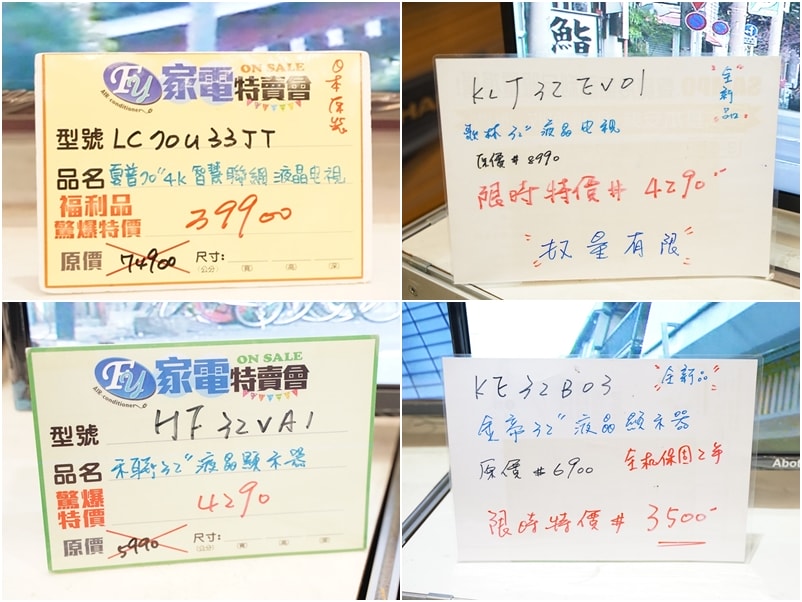 FU 家電特賣會
ON SALE
AIR conditioner
日本原裝
型號 LC70U33JT
品名 夏普70"4K智慧聯網液晶电視
福利品
驚爆特價 39900
原價 74900 尺寸:
(公分) 寬 高 深
鮨
KLT32EV01
全新品
歌林32"液晶电視
原價#8990
限時特價#4290
數量有限
FU 家電特賣會
ON SALE
AIR conditioner
型號 HF32VA1
品名 禾聯32"液晶顯示器
驚爆
特價 4290
原價 5990 尺寸:
(公分) 寬 高 深
KE32B03
全新品
金帝32"液晶顯示器
原價#6900 全机保固2年
限時特價#3500
Abot